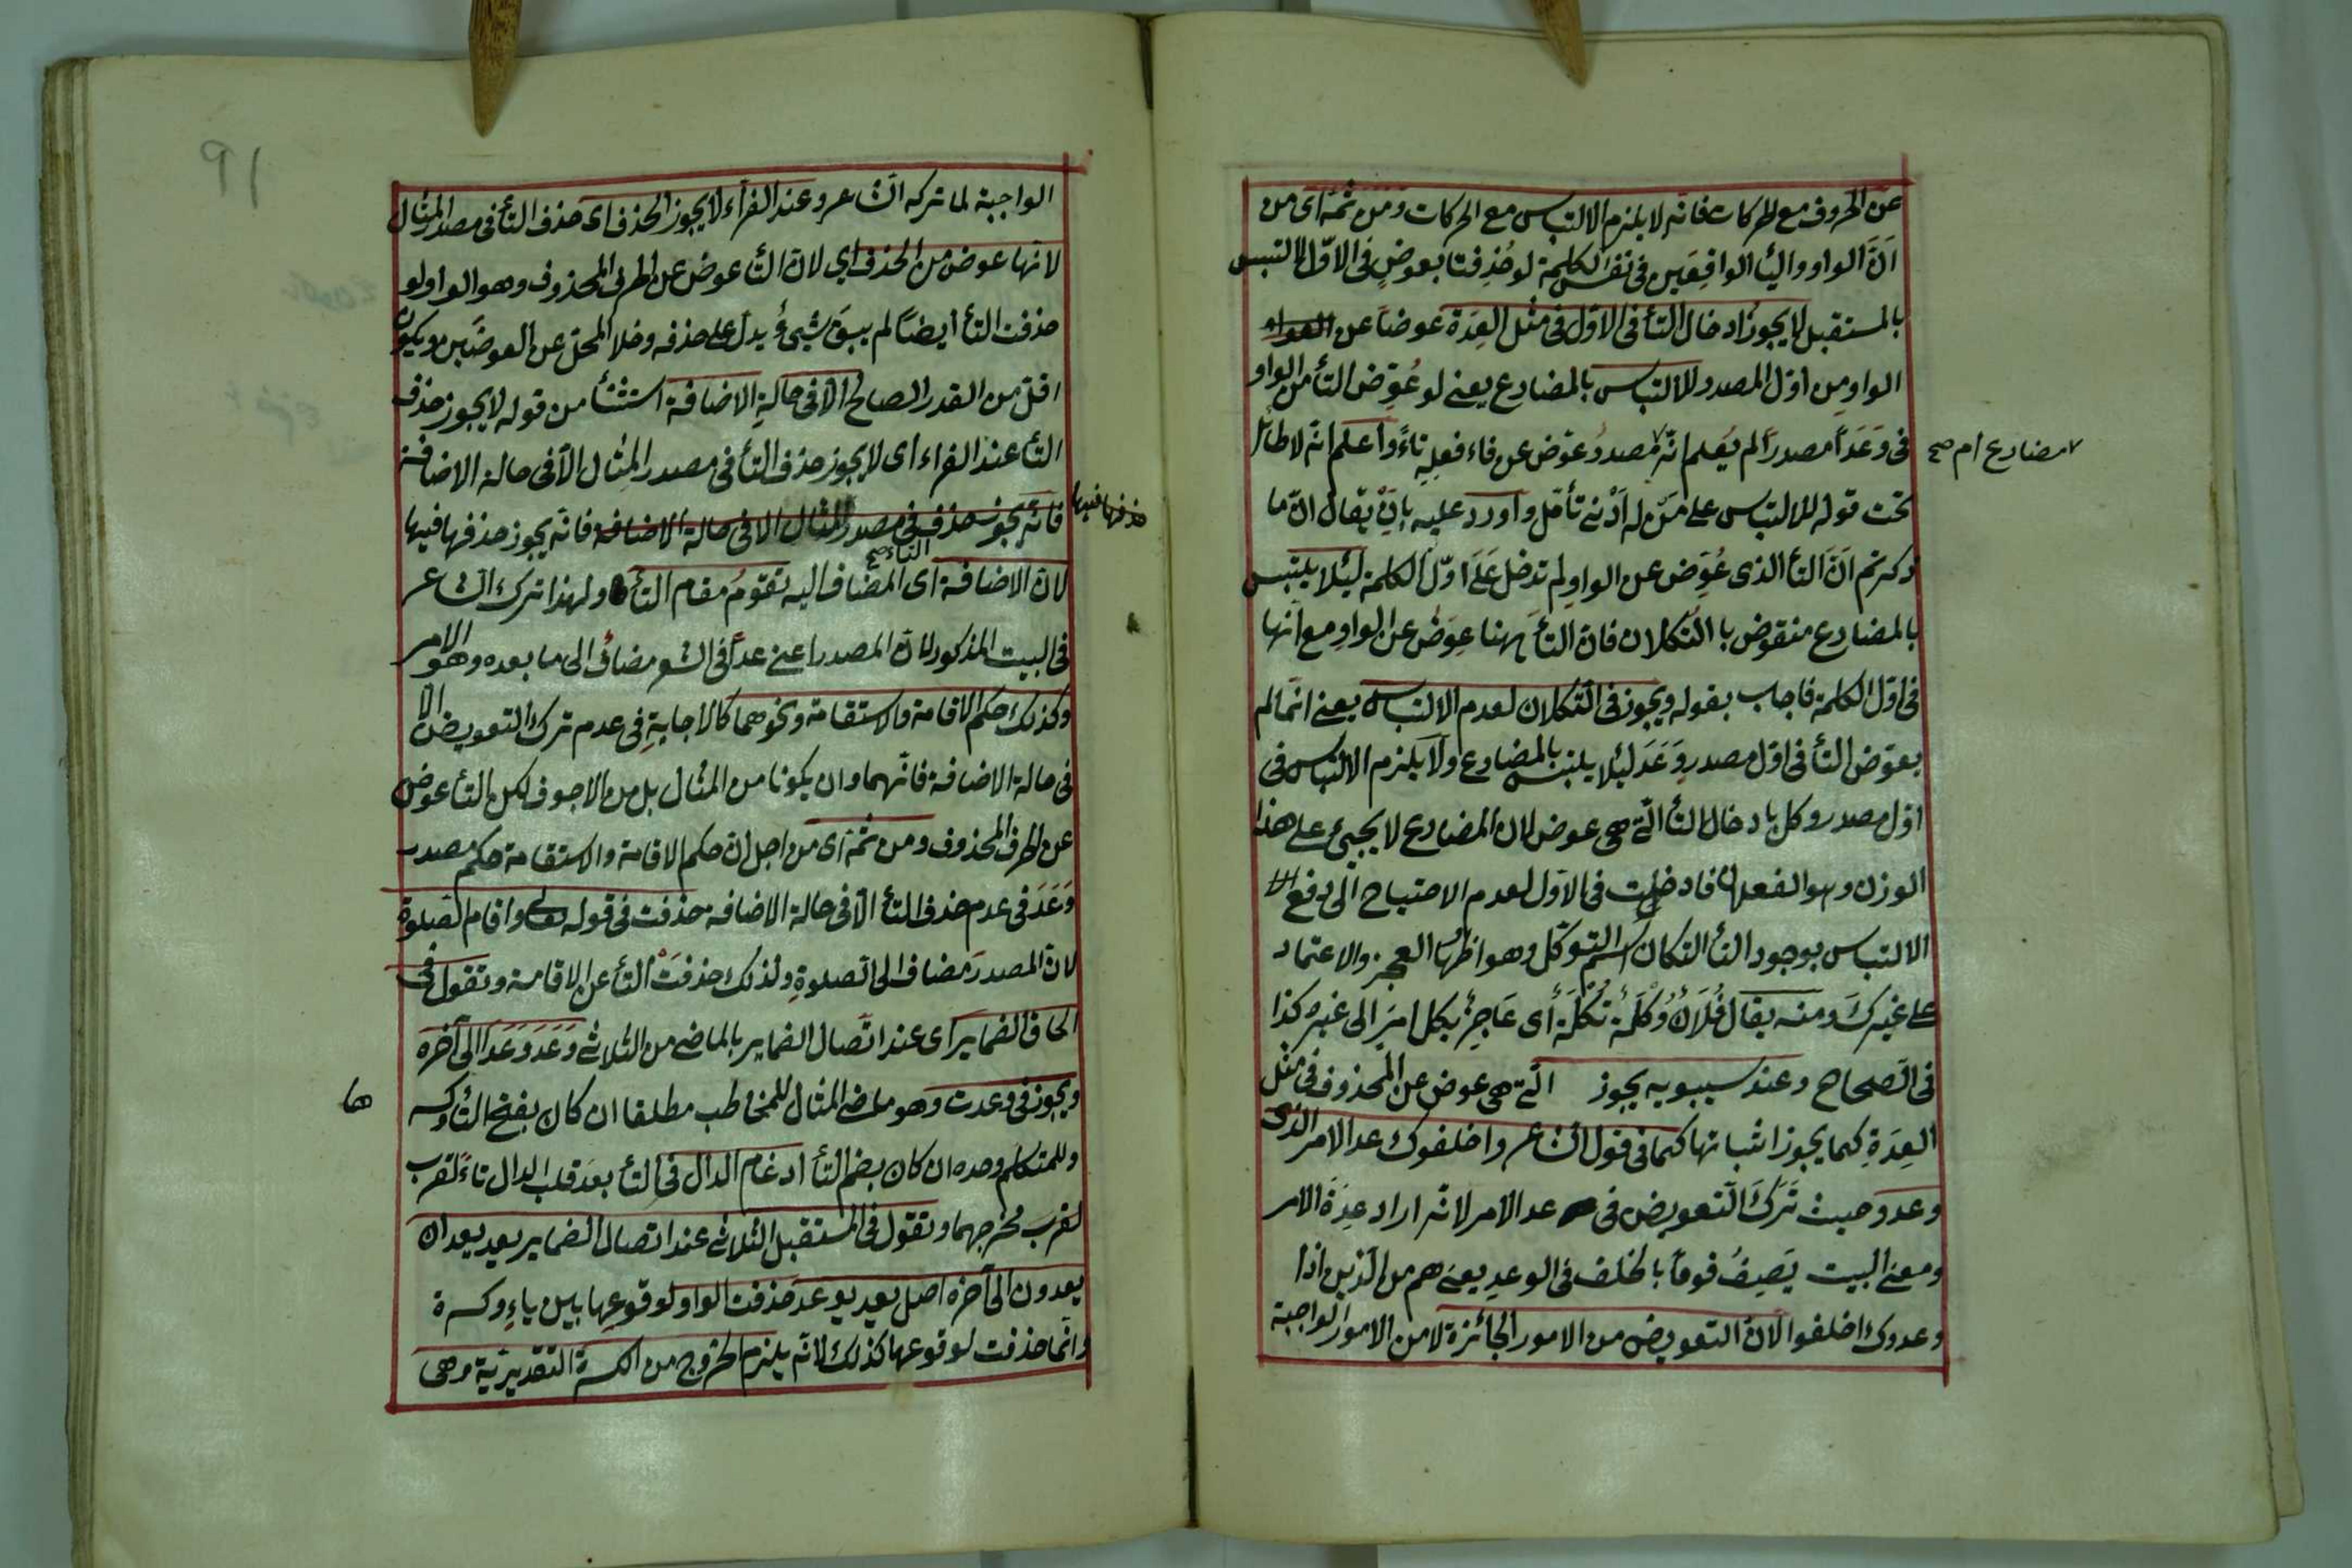 عن الحروف مع الحركات فانه لا يلزم الالتباس مع الحركات ومن ثمه اى من
اَنَّ الواو واليأ الواقِعَين فى نفس الكلمة لو حُذِفتا بعوضٍ فى الاوّل لالتبس
بالمستقبل لا يجوزُ ادخال التأ فى الاوّل فى مثل العِدَة عوضاً عن
الواو مِن اوّل المصدر للالتباس بالمضارع يعنے لو عُوّض التأ من الواو
فى وَعَدَ مصدراً لم يُعلم انّه مصدرُ عوّض عن فاء فعلِهِ تاءً واعلم انّه لا طائل
مضارع ام صح
تحت قوله للالتباس على مَنْ له اَدْنے تأمّل واورد عليه بِاَنْ يقال انّ ما
ذكرتم اَنَّ التأ الذى عُوّض عن الواوِ لم تدخل عَلَے اوّل الكلمة ليئلا يلتبس
بالمضارع منقوض با التُكلان فانّ التأَ ههنا عِوَضٌ عن الواوِ مع انها
فى اوّل الكلمة فاجاب بقوله ويجوز فى التكلان لعدم الالتباس يعنے انّما لم
يعوّض التأ فى اوّل مصدرِ وَعَدَ ليئلا يلتبس بالمضارع ولا يلزم الالتباس فى
اوّل مصدر وكل بادخال التأ الّتے هى عوض لان المضارع لا يجيئ على هذا
الوزن وهو الفعلان فادخلت فى الاوّل لعدم الاحتياج الى دفع
الالتباس بوجود التأ التكلان اسم التوكّل وهو اظهار العجز والاعتماد
على غيرك ومنه يقال فُلَانٌ وُكَلَةٌ تُكَلَةٌ أى عَاجِزٌ يكل امرَ الى غيره كذا
فى الصّحاح وعند سيبويه يجوز الّتے هى عوض عن المحذوف فى مثل
العِدَةِ كما يجوز اثباتها كما فى قول الشاعر واخلفوك عد الامر الذى
وعدو حيث تَرَكَ التّعويض فى عد الامر لانّه اراد عِدَةَ الامر
ومعنے البيت يَصِفُ قومًا بالخلف فى الوعدِ يعنى هم من الّذين اذا
وعدوك اخلفوا لانّ التعويض من الامور الجائزة لا من الامور الواجبة
٩١
الواجبة لما تركه الشاعر وعند الفرّاء لا يجوز الحذف اى حذف التأ فى مصدر المثال
لانّها عوض من الحذف اي لان التأ عوض عن الحرف المحذوف وهو الواو لو
حذفت التأ أيضاً لم يبقَ شيئ يدلّ على حذفه وخلا المحلّ عن العوضَين ويكون
اقلّ من القدر الصالح الّا فى حالةِ الاضافة استثنأ من قوله لا يجوز حذف
التأ عند الفراء اى لا يجوز حذف التأ فى مصدر المِثال الّا فى حالة الاضافة
فانّه يجوز حذف فى مصدر المثال الا فى حالة الاضافة فانّه يجوز حذفها فيها
حذفها فيها
التاء صح
لانّ الاضافة اى المضاف اليه تقومُ مقام التأ ولهذا ترك الشاعر
فى البيت المذكور لانّ المصدر اعنے عداً فى الشعر مضافُ الى ما بعده وهو الامر
وكذلك حكم الاقامة والاستقامة ونحوهما كالاجابةِ فى عدم ترك التعويض الّا
فى حالة الاضافة فانّهما وان يكونا من المثال بل من الاجوف لكن التأ عوض
عن الحرف المحذوف ومن ثمّة اى من اجل انّ حكم الاقامة والاستقامة حكم مصدر
وَعَدَ فى عدم حذف التأ الّا فى حالة الاضافة حذفت فى قوله تعالى واقام الصلوة
لانّ المصدرَ مضاف الى الصلوةِ ولذلك حذفَتْ التأ عن الاقامة وتقول فى
الحاق الضماير اى عند اتّصال الضماير بالماضے من الثلاثے وَعَدَ وَعَدَا الى آخره
ويجوز فى وعدت وهو ماضے المثال للمخاطب مطلقا ان كان بفتح التأ وكسر
ها
وللمتكلم وحده ان كان بضم التأ ادغام الدال فى التأ بعدَ قلب الدال تاءً لقرب
لقرب مخرجهما وتقول فى المستقبل الثلاثے عند اتصال الضماير يعد يعدان
يعدون الى آخره اصل يعد يوعد حذفت الواو لوقوعها بين ياءٍ وكسرة
وانّما حذفت لوقوعها كذلك لانّه يلزم الخروج من الكسرة التقديريّة وهى